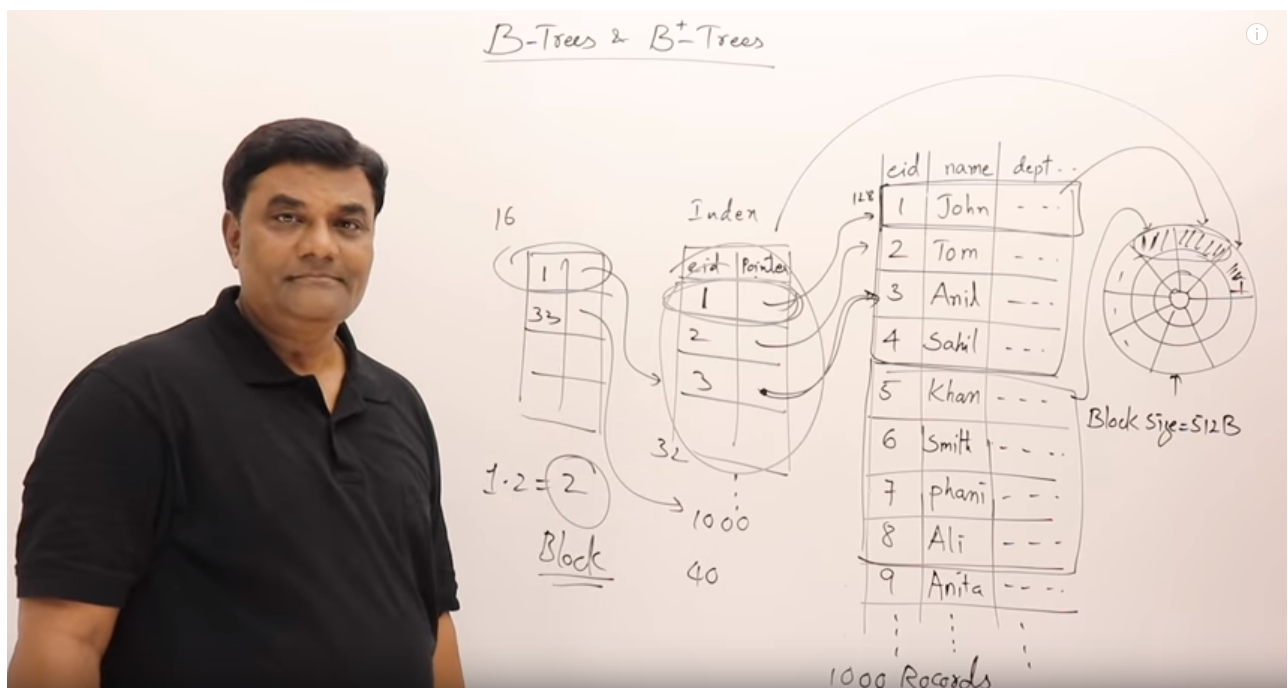 B-Trees & B+-Trees
16
1
33
1·2 = 2
Block
Index
eid Pointer
1
2
3
32
1000
40
eid name dept..
128 1 John ---
2 Tom ---
3 Anil ---
4 Sahil ---
5 Khan ---
6 Smith ----
7 phani ---
8 Ali ---
9 Anita ----
1000 Rocords
Block Size=512B